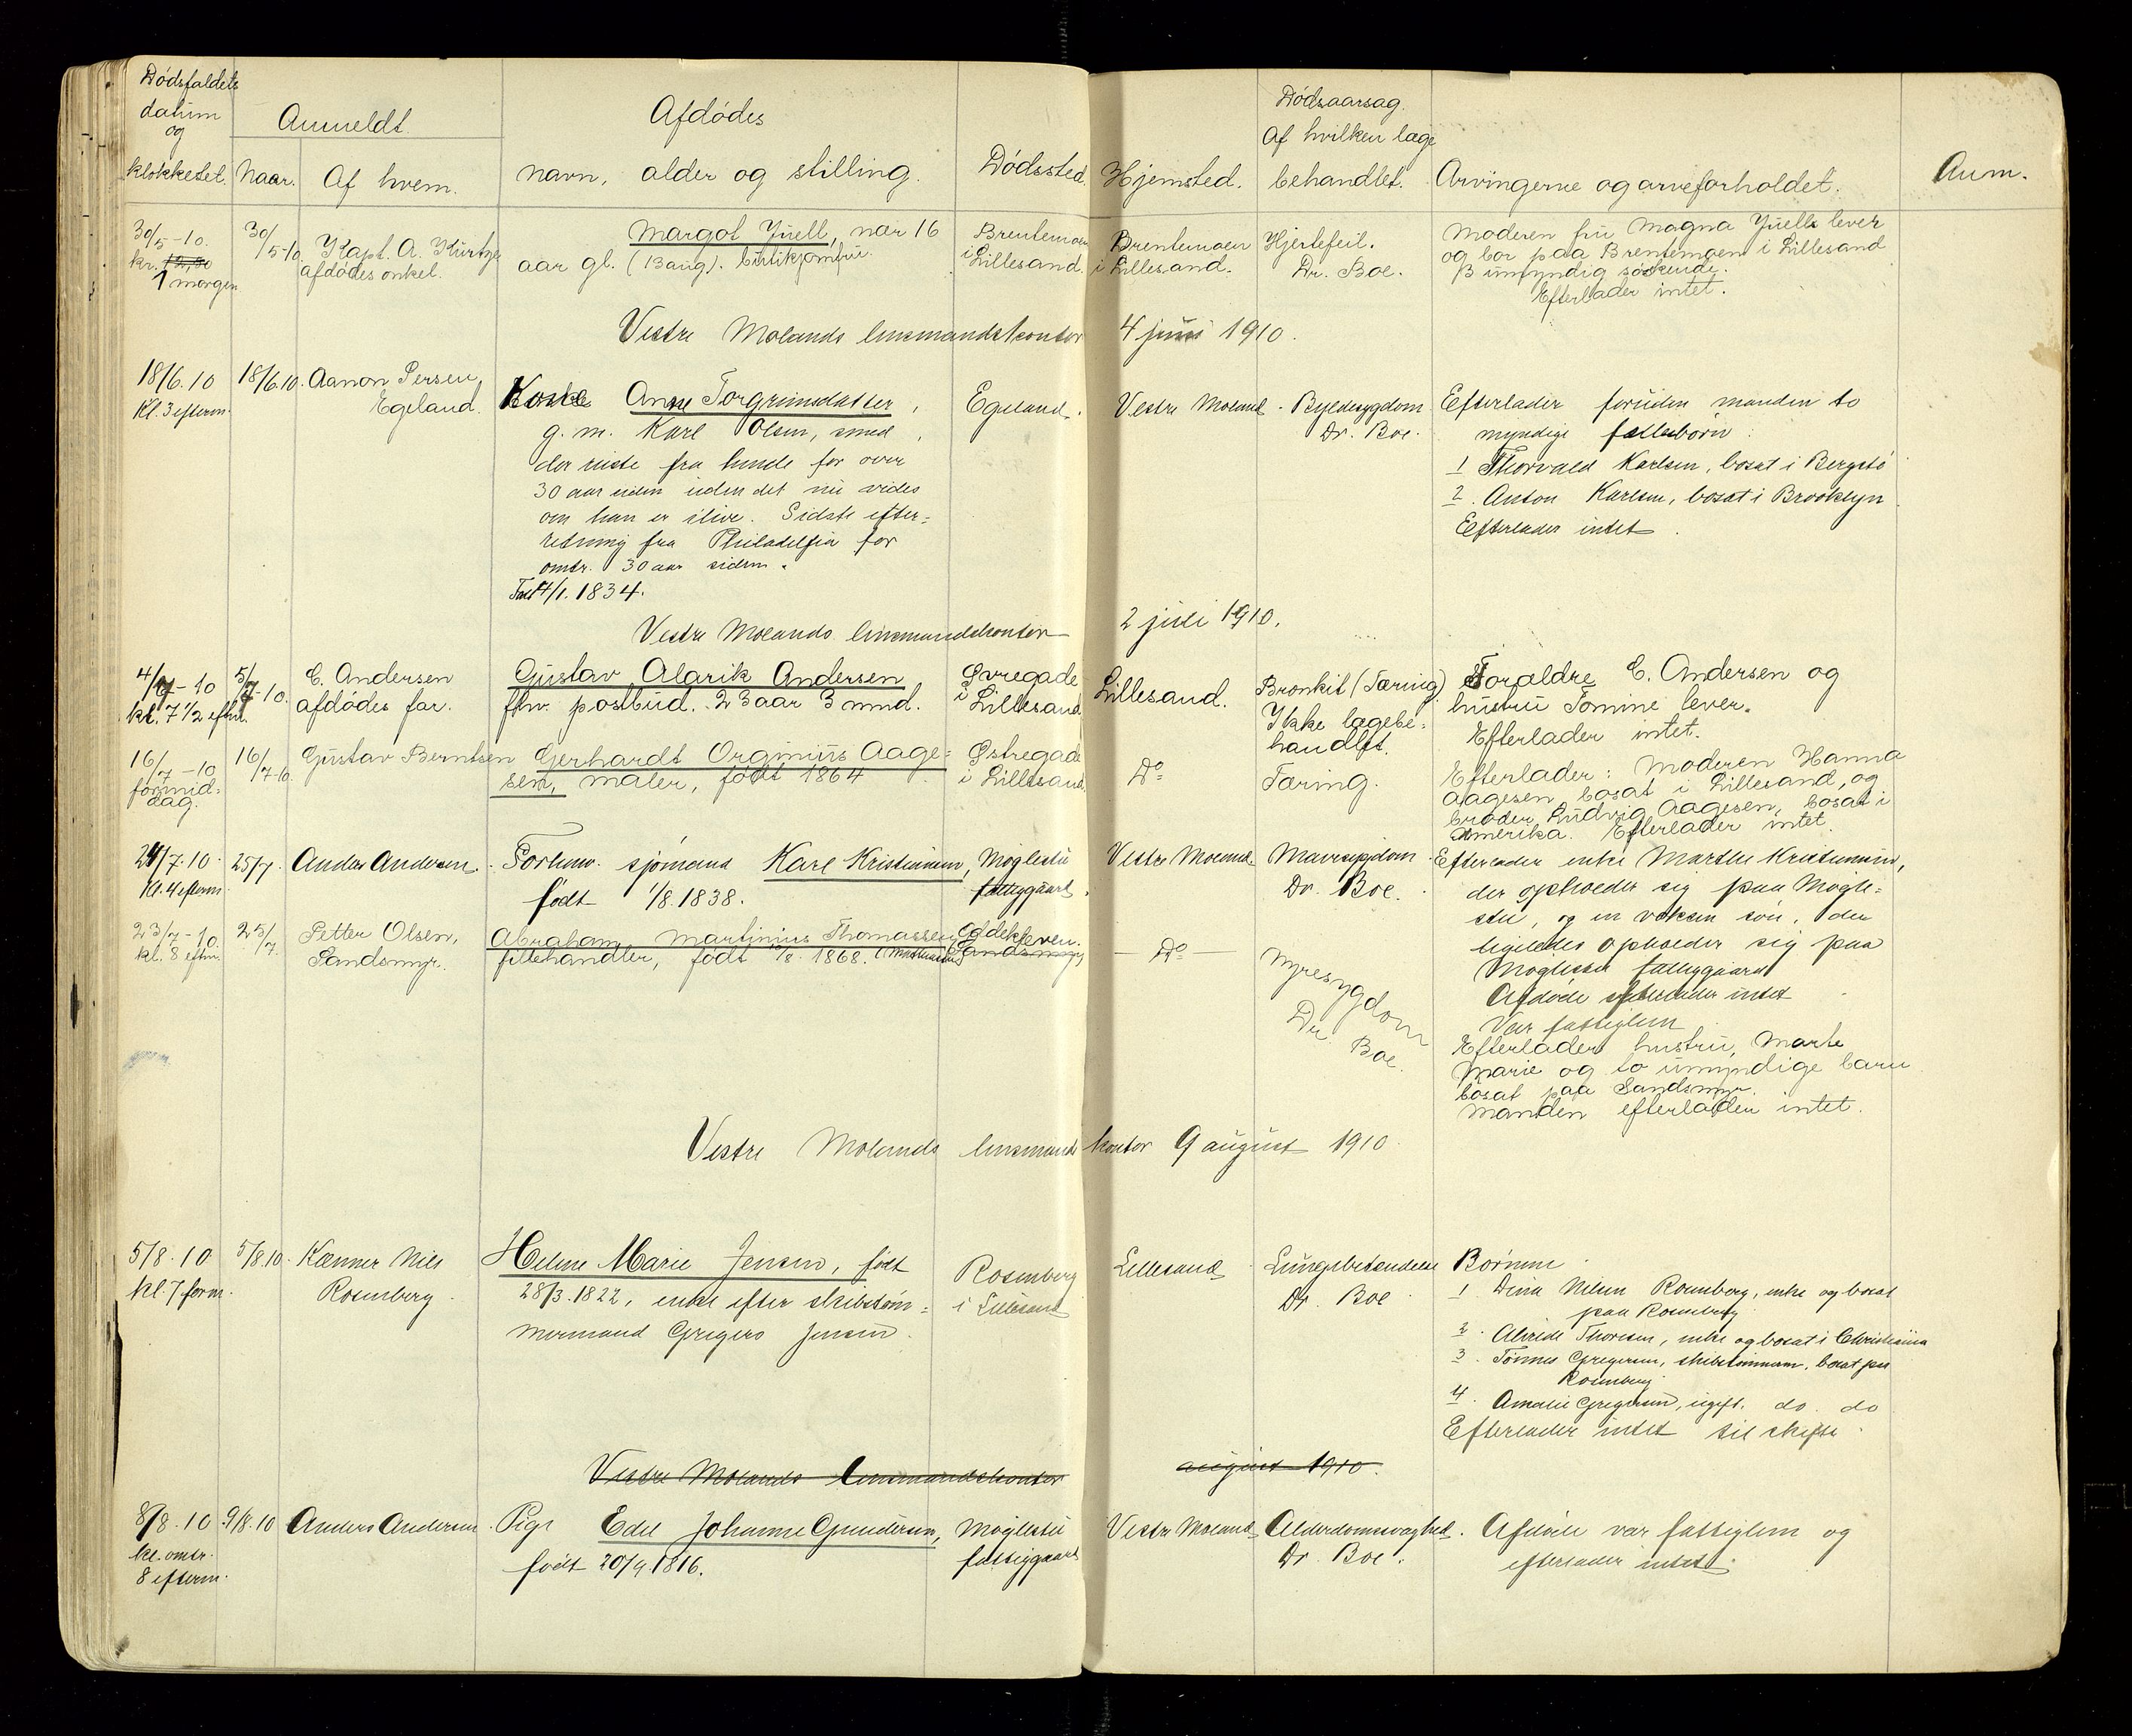 Dödsfaldets
datum
og
klokkeset.
Anmeldt.
Naar. Af hvem.
Afdödes
navn, alder og stilling.
Dödssted.
Hjemsted.
Dödsaarsag.
Af hvilken læge
behandlet.
Arvingerne og arveforholdet.
Anm.
30/5-10.
kr. 12,30
1 morgen
30/5-10
Kapt. A. Kurtze
afdödes onkel.
Margot Juell, nær 16
aar gl. (Baug). butikjomfru
Brentemoen
i Lillesand.
Brentemoen
i Lillesand.
Hjertefeil.
Dr. Boe.
Moderen fru Magna Juell lever
og bor paa Brentemoen i Lillesand
3 umyndig söskende.
Efterlader intet.
Vestre Molands lensmandskontor 4 juni 1910.
18/6.10
Kl. 3 efterm.
18/6.10.
Aanon Persen
Egeland.
Kone Anne Torgrimsdatter,
g. m. Karl Olsen, smed,
der reiste fra hende for over
30 aar siden uden det nu vides
om han er ilive. Sidste efter=
retning fra Philadelfia for
omtr. 30 aar siden.
Født 4/1. 1834.
Egeland.
Vestre Moland.
Dr. Boe.
Efterlader foruden manden to
myndige fællesbörn:
1 Thorvald Karlsen, bosat i Bergstö
2. Anton Karlsen, bosat i Brooklyn.
Efterlader intet.
Vestre Molands lensmandskontor 2 juli 1910.
4/7-10
kl. 7 1/2 eftm.
5/7-10.
C. Andersen
afdödes far.
Gustav Alarik Andersen
fhv. postbud. 23 aar 3 mnd.
Øvregade
i Lillesand
Lillesand.
Bronkit (Tæring)
Ikke lægebe=
handlet.
Foraldre C. Andersen og
hustru Tomine lever.
Efterlader intet.
16/7-10
formid=
dag.
16/7-10.
Gustav Berntsen
Gerhardt Orginius Aage=
sen, maler, født 1864
Østregade
i Lillesand.
Do
Tæring.
Efterlader: moderen Hanna
Aagesen bosat i Lillesand, og
broder Ludvig Aagesen, bosat i
Amerika. Efterlader intet.
24/7.10.
Kl. 4 efterm.
25/7.
Anders Andersen.
Forhenv. sjömand Karl Kristiansen,
födt 1/8. 1838.
Möglestu
fattiggaard.
Vestre Moland.
Mavesygdom
Dr. Boe.
Efterlader enke Marthe Kristiansen,
der opholder sig paa Mögle=
stu, og en voksen sön, der
ligeledes opholder sig paa
Möglestu fattiggaard
Afdöde efterlader intet.
Var fattiglem
23/7-10.
kl. 8 eftm.
25/7.
Petter Olsen,
Sandsmyr.
Abraham Martinius Thomassen,
fillehandler, födt 1868.
Sandsmyr
Do
Nyresygdom
Dr. Boe.
Efterlader hustru, Marte
Marie og to umyndige barn
bosat paa Sandsmyr.
Manden efterlader intet.
Vestre Molands lensmandskontor 9 august 1910.
5/8.10
kl. 7 form.
5/8.10.
Kæmner Nils
Rosenberg.
Helene Marie Jensen, födt
28/3.1822, enke efter skibstöm=
mermand Gregers Jensen.
Rosenberg
i Lillesand
Lillesand
Lungebetændelse
Dr. Boe
Börnene
1. Dina Nilsen Rosenberg, enke og bosat
paa Rosenberg
2. Alvilde Thoresen, enke og bosat i Christiania
3. Tönnes Gregersen, skibstömmerm., bosat paa
Rosenberg
4. Amalie Gregersen, ugift. do. do
Efterlader intet til skifte.
Vestre Molands lensmandskontor august 1910.
8/8.10
kl. omtr.
8 efterm.
9/8.10
Anders Andersen.
Pige Edel Johanne Gundersen,
födt 20/9 1816.
Möglestu
fattiggaard
Vestre Moland
Alderdomssvaghed.
Dr. Boe.
Afdöde var fattiglem og
efterlader intet.